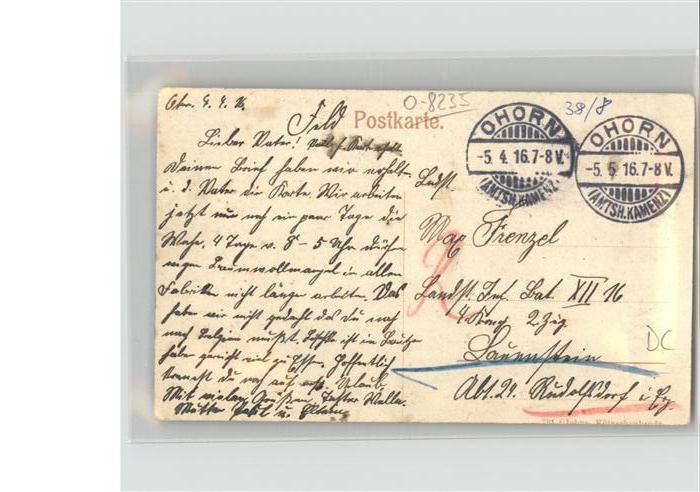 Feld Postkarte.
O-8235
38/8
OHORN
-5. 4. 16. 7-8 V.
(AMTSH. KAMENZ)
OHORN
-5. 5. 16. 7-8 V.
(AMTSH. KAMENZ)
Lieber Vater!
Deinen Brief haben wir erhalten
u. d. Vater die Karte. Wir arbeiten
jetzt nur noch ein paar Tage die
Woche. 4 Tage v. 8 - 5 Uhr
Baumwollmangel in allen
Fabriken nicht länger arbeiten. Das
haben wir nicht gedacht das du noch
nach Belgien mußt. ist in
Hoffentlich
du noch auf Urlaub.
Mit vielen Grüßen
Mutter u.
Landst.
Max Frenzel
Landst. Inf. Bat. XII 16
4 Komp. 2. Zug.
Lauenstein
Abt. 21. Rudolfsdorf i. Erzg.
DC